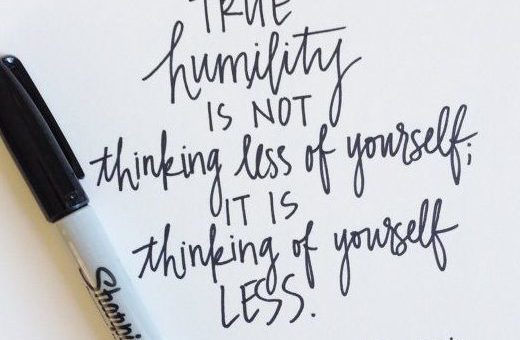 TRUE
humility
IS NOT
thinking less of yourself;
IT IS
thinking of yourself
LESS.
Sharpie